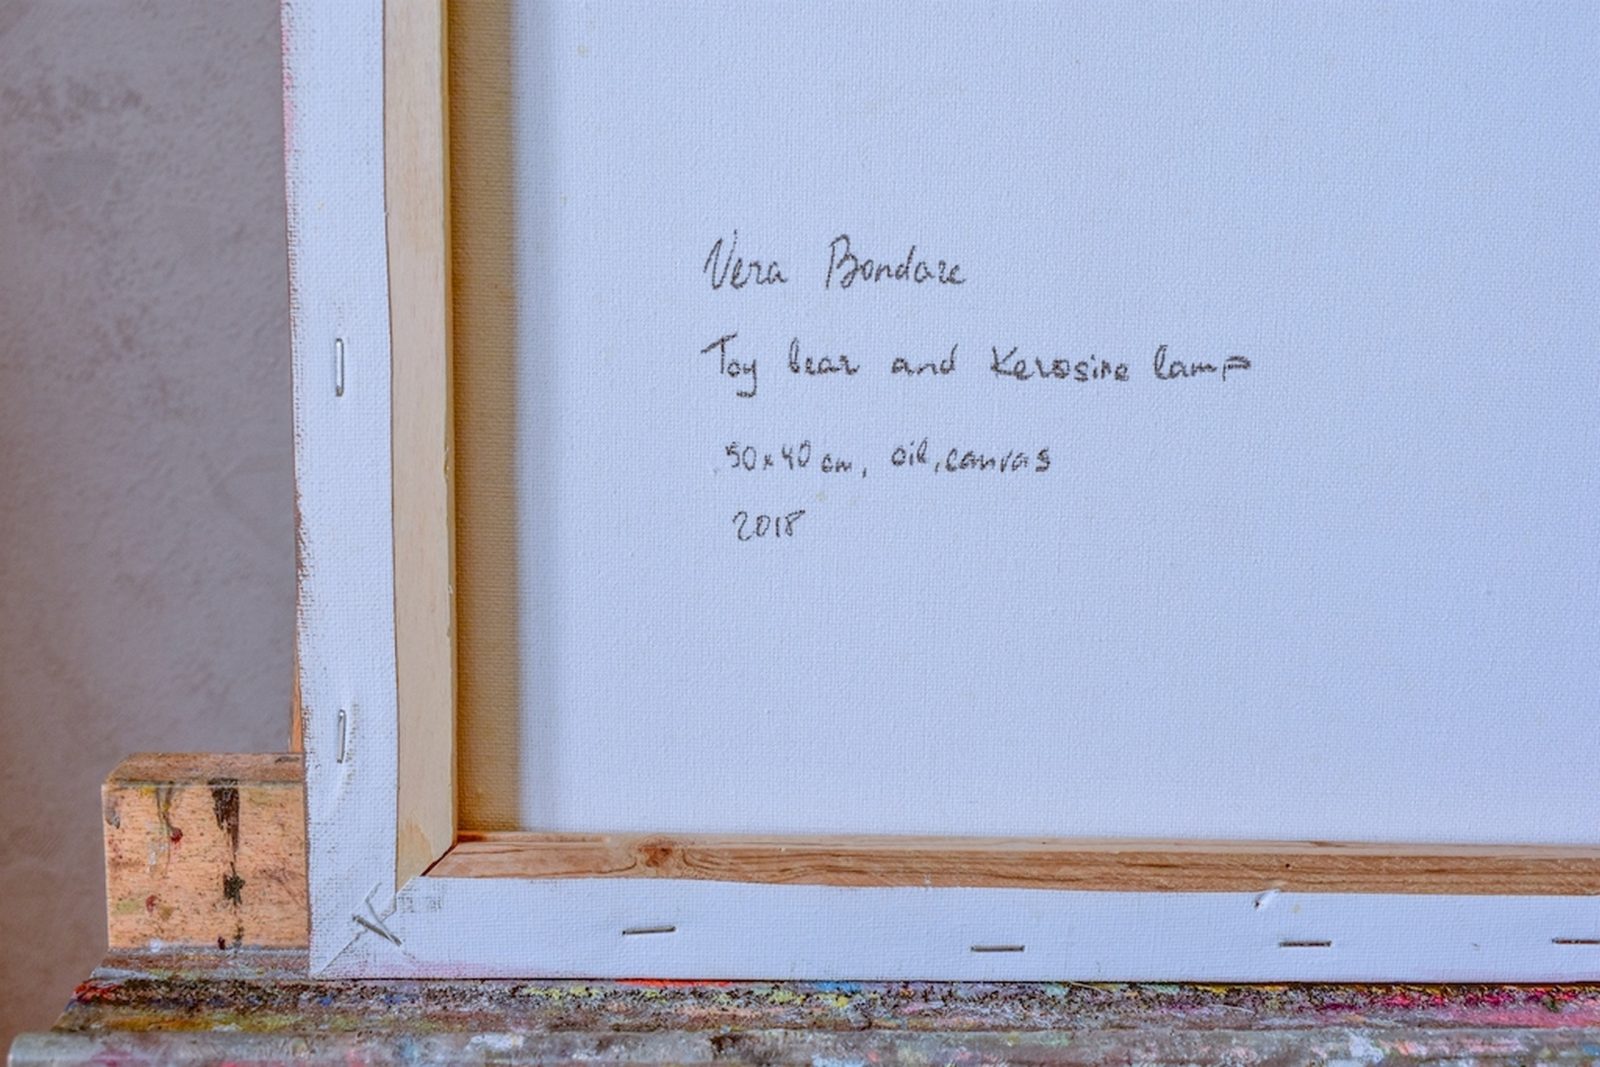 Vera Bondare
Toy bear and Kerosine lamp
50x40 cm, oil, canvas
2018